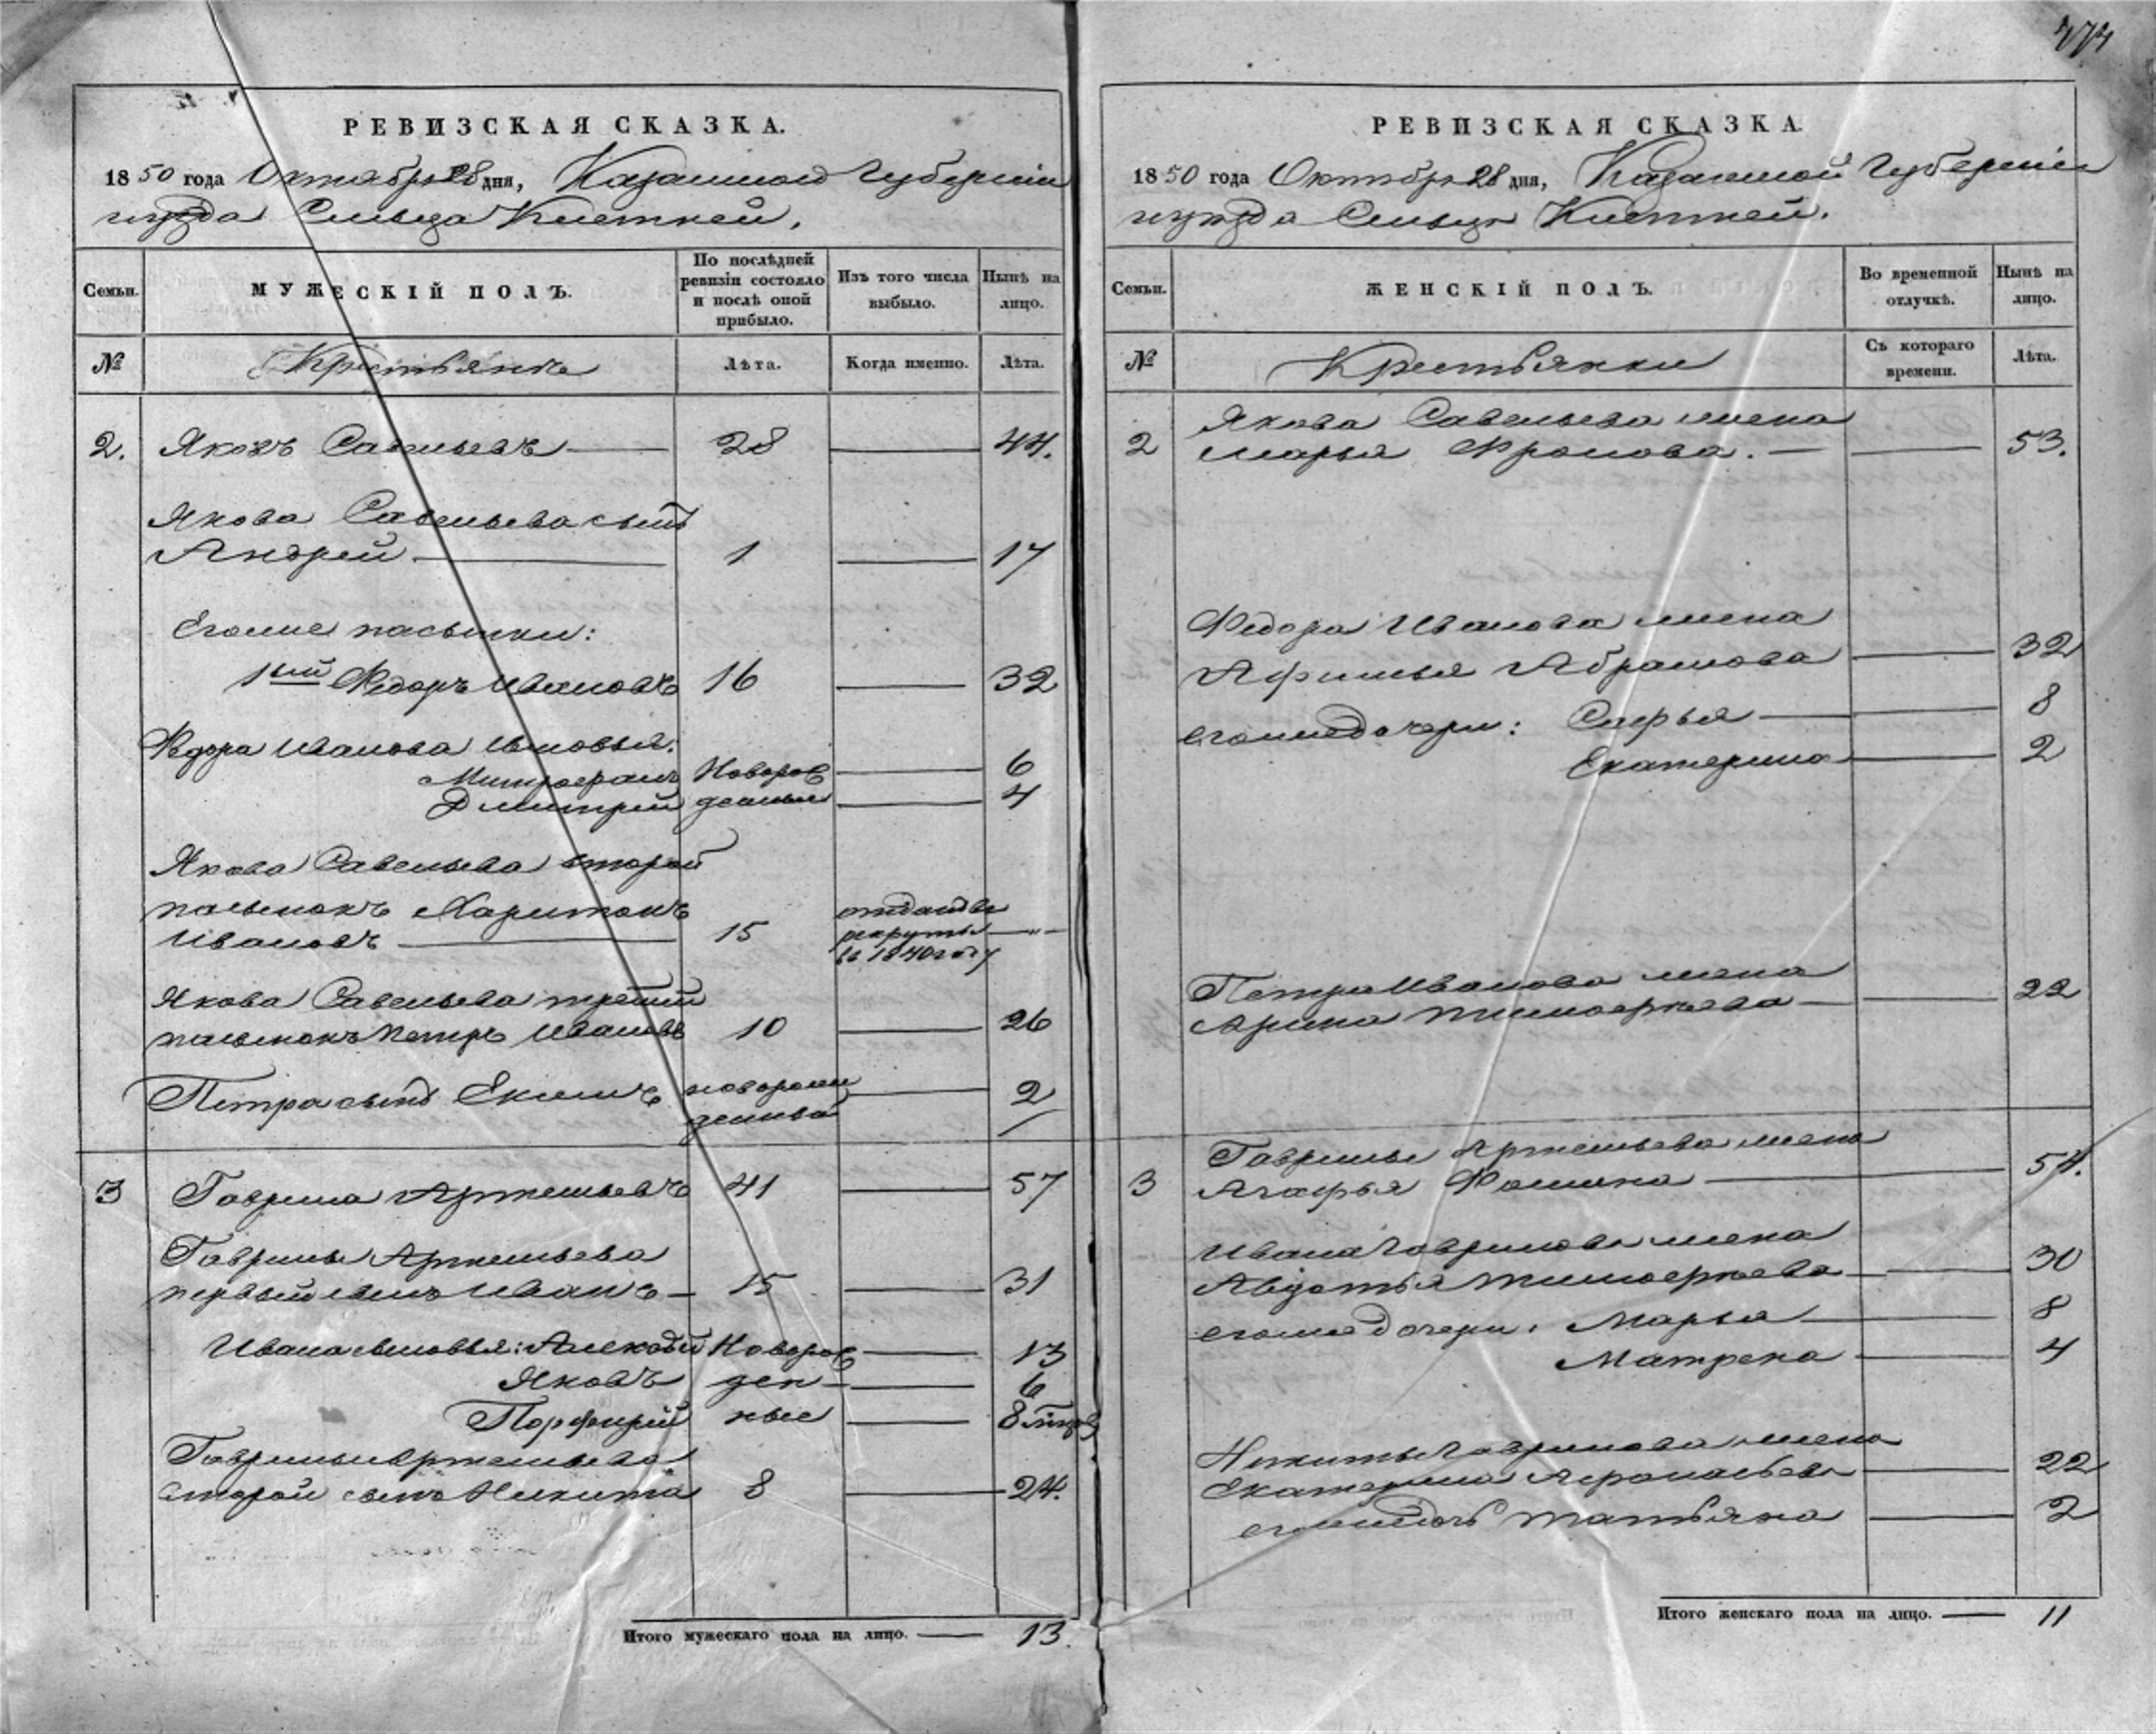 474
РЕВИЗСКАЯ СКАЗКА.
1850 года Октября 28 дня, Казанской Губерніи
уѣзда Сельца
МУЖЕСКІЙ ПОЛЪ.
Семьи.
По послѣдней ревизіи состояло и послѣ оной прибыло.
Изъ того числа выбыло.
Нынѣ на лицо.
№
Крестьяне
Лѣта.
Когда именно.
Лѣта.
2. Яковъ Савельевъ — 28 — 44.
Якова Савельева сынъ
Андрей — 1 — 17
Егоже пасынки:
1ый Федоръ Ивановъ 16 — 32
Федора Иванова сыновья:
Митрофанъ Новорож — 6
Дмитрій денные — 4
Якова Савельева второй
пасынокъ Харитонъ
Ивановъ — 15 отданъ въ рекруты въ 1840 году — „ —
Якова Савельева третій
пасынокъ Петръ Ивановъ 10 — 26
Петра сынъ Екимъ новорож денный — 2
3 Гаврила Артемьевъ 41 — 57
Гаврилы Артемьева
первый сынъ Иванъ — 15 — 31
Ивана сыновья: Алексѣй Новорож — 13
Яковъ ден — 6
Порфирій ные — 8
Гаврилы Артемьева
второй сынъ Никита 8 — 24.
Итого мужескаго пола на лицо. — 13.
РЕВИЗСКАЯ СКАЗКА.
1850 года Октября 28 дня, Казанской Губерніи
уѣзда Сельца
Семьи.
ЖЕНСКІЙ ПОЛЪ.
Во временной отлучкѣ.
Нынѣ на лицо.
№
Крестьянки
Съ котораго времени.
Лѣта.
Якова Савельева жена
2 Марья Фролова. — — 53.
Федора Иванова жена
Афимья Абрамова — 32
егоже дочери: Софья — 8
Екатерина — 2
Петра Иванова жена
Арина Тимофеева — — 22
Гаврилы Артемьева жена
3 Агафья Фомина — 54.
Ивана Гаврилова жена
Авдотья Тимофеева — 30
егоже дочери: Марья — 8
Матрена — 4
Никиты Гаврилова жена
Екатерина Афонасьева — 22
егоже дочь Татьяна — 2
Итого женскаго пола на лицо. — 11